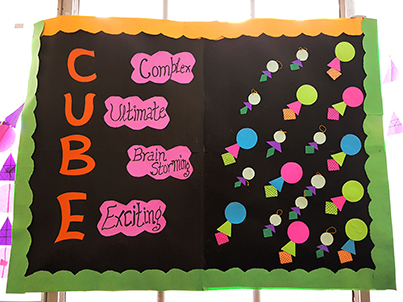 C Complex
U Ultimate
B Brain
Storming
E Exciting